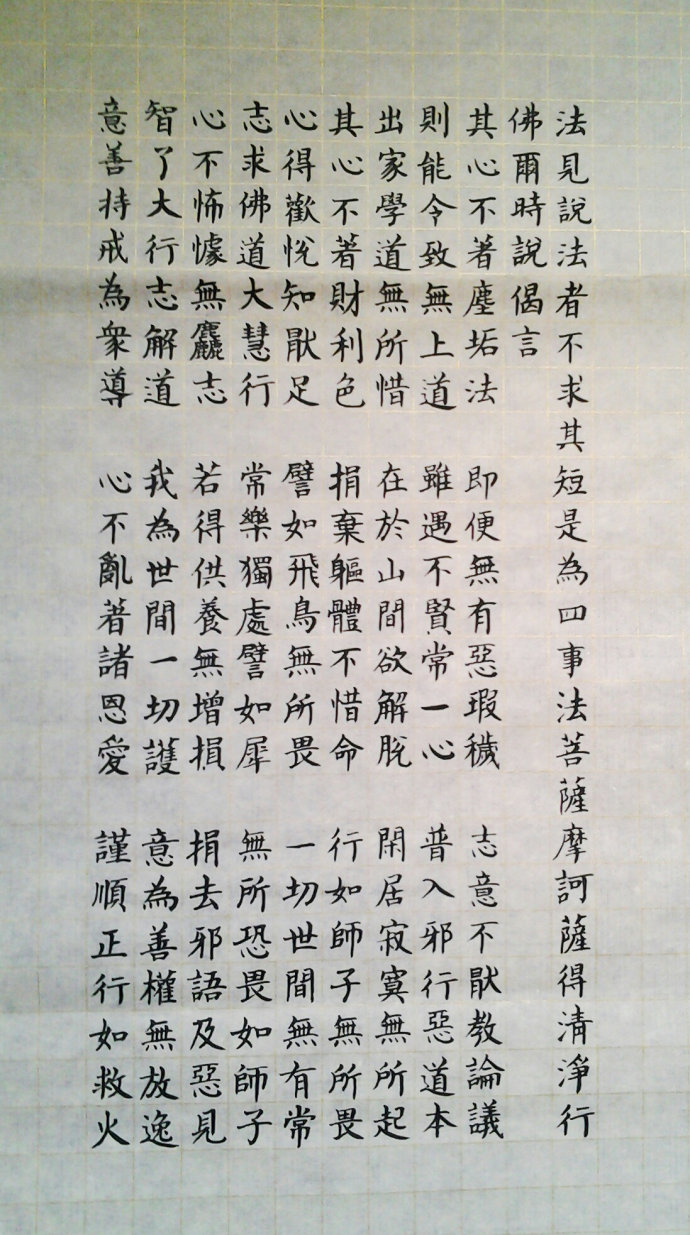 法見說法者不求其短是為四事法菩薩摩訶薩得清淨行
佛爾時說偈言
其心不著塵垢法 即便無有惡瑕穢 志意不厭教論議
則能令致無上道 雖遇不賢常一心 普入邪行惡道本
出家學道無所惜 在於山間欲解脫 閑居寂寞無所起
其心不著財利色 捐棄軀體不惜命 行如師子無所畏
心得歡悅知厭足 譬如飛鳥無所畏 一切世間無有常
志求佛道大慧行 常樂獨處譬如犀 無所恐畏如師子
心不怖懅無麤志 若得供養無增損 捐去邪語及惡見
智了大行志解道 我為世間一切護 意為善權無放逸
意善持戒為衆導 心不亂著諸恩愛 謹順正行如救火